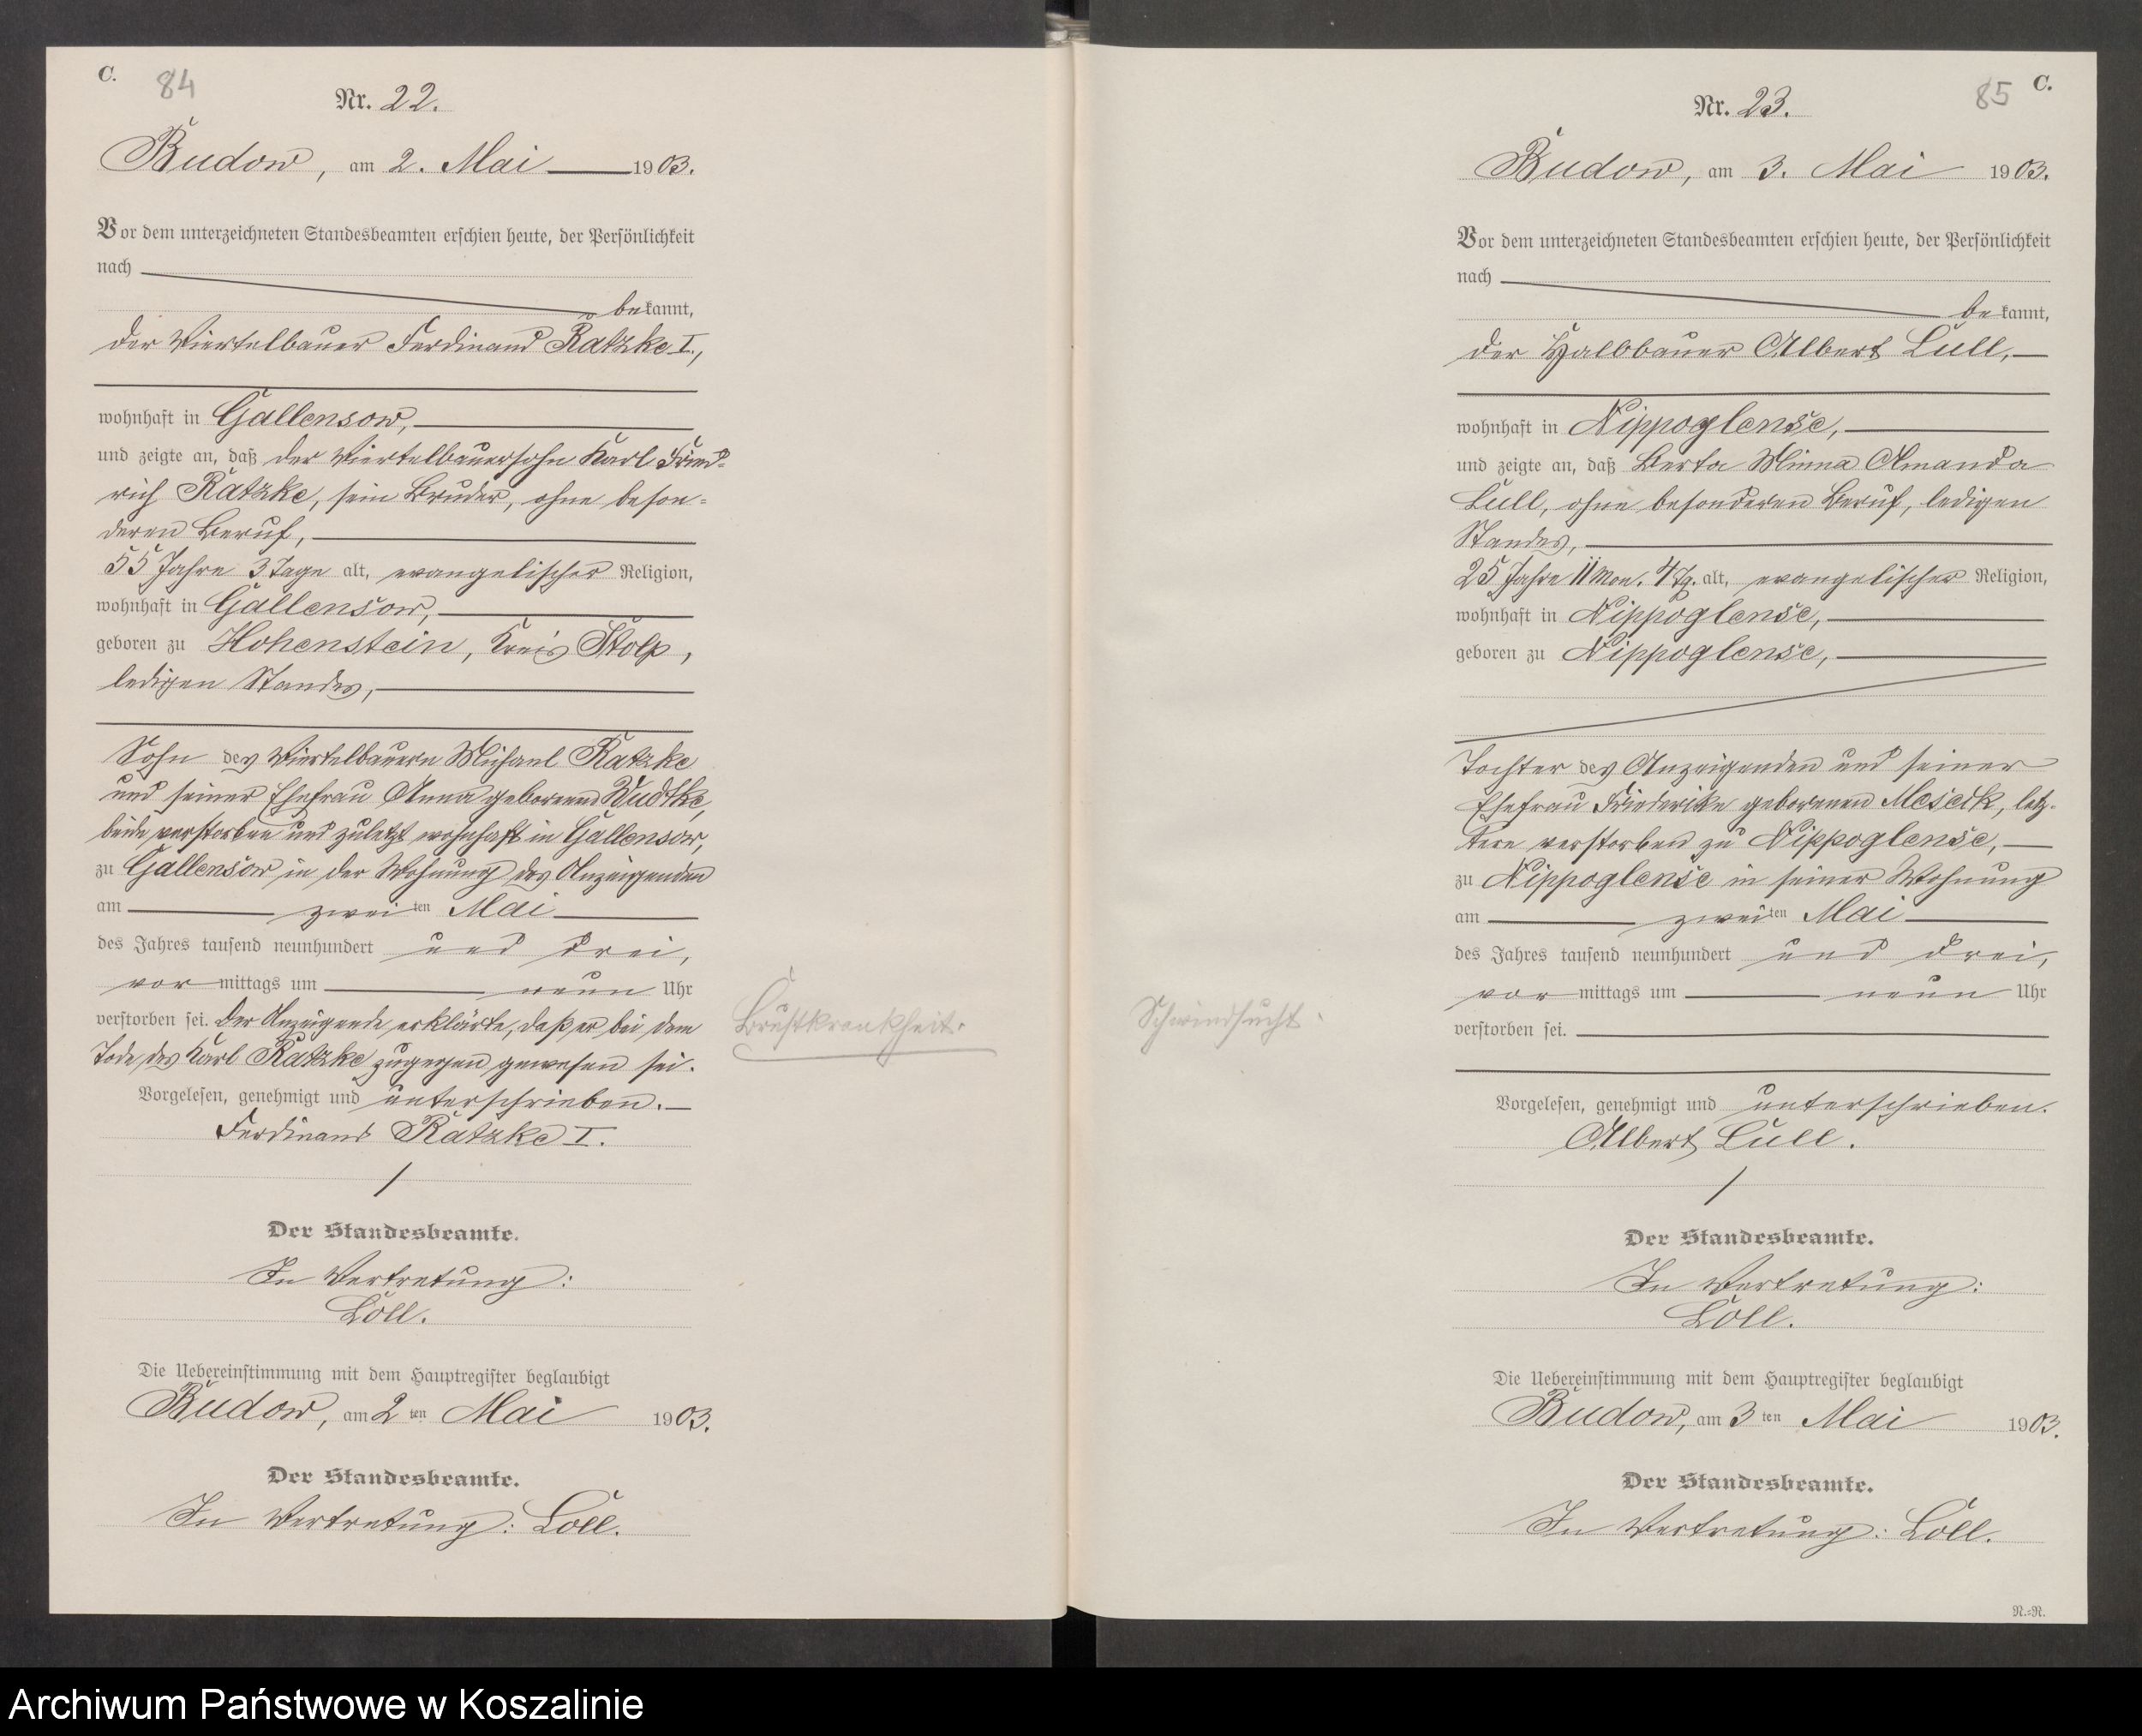 C.
84
Nr. 22.
Budow, am 2. Mai 1903.
Vor dem unterzeichneten Standesbeamten erschien heute, der Persönlichkeit
nach
bekannt,
der Viertelbauer Ferdinand Ratzke I.,
wohnhaft in Gallensow,
und zeigte an, daß der Viertelbauersohn Karl Fried-
rich Ratzke, sein Bruder, ohne beson-
deren Beruf,
55 Jahre 3 Tage alt, evangelischer Religion,
wohnhaft in Gallensow,
geboren zu Hohenstein, Kreis Stolp,
ledigen Standes,
Sohn des Viertelbauern Michael Ratzke
und seiner Ehefrau Anna geborenen Wudtke,
beide verstorben und zuletzt wohnhaft in Gallensow,
zu Gallensow in der Wohnung des Anzeigenden
am zweiten Mai
des Jahres tausend neunhundert und drei,
vor mittags um neun Uhr
verstorben sei. Der Anzeigende erklärte, daß er bei dem
Tode des Karl Ratzke zugegen gewesen sei.
Brustkrankheit.
Vorgelesen, genehmigt und unterschrieben.
Ferdinand Ratzke I.
Der Standesbeamte.
In Vertretung:
Loll.
Die Uebereinstimmung mit dem Hauptregister beglaubigt
Budow, am 2ten Mai 1903.
Der Standesbeamte.
In Vertretung: Loll.
C.
85
Nr. 23.
Budow, am 3. Mai 1903.
Vor dem unterzeichneten Standesbeamten erschien heute, der Persönlichkeit
nach
bekannt,
der Halbbauer Albert Lull,
wohnhaft in Nippoglense,
und zeigte an, daß Berta Minna Amanda
Lull, ohne besonderen Beruf, ledigen
Standes,
25 Jahre 11 Mon. 4 Tg. alt, evangelischer Religion,
wohnhaft in Nippoglense,
geboren zu Nippoglense,
Tochter des Anzeigenden und seiner
Ehefrau Friederike geborenen Meseck, letz-
tere verstorben zu Nippoglense,
zu Nippoglense in seiner Wohnung
am zweiten Mai
des Jahres tausend neunhundert und drei,
vor mittags um neun Uhr
verstorben sei.
Schwindsucht.
Vorgelesen, genehmigt und unterschrieben.
Albert Lull.
Der Standesbeamte.
In Vertretung:
Loll.
Die Uebereinstimmung mit dem Hauptregister beglaubigt
Budow, am 3ten Mai 1903.
Der Standesbeamte.
In Vertretung: Loll.
N.=N.
Archiwum Państwowe w Koszalinie